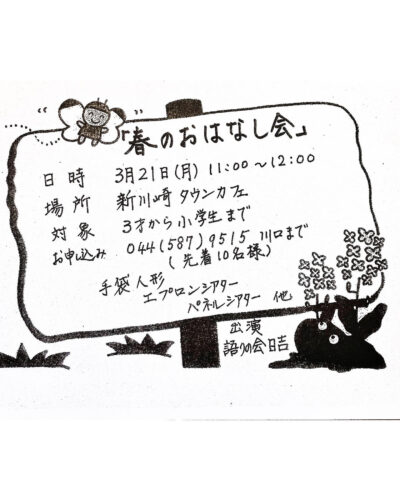 「春のおはなし会」
日時 3月21日(月) 11:00~12:00
場所 新川崎 タウンカフェ
対象 3才から小学生まで
お申込み 044(587)9515 川口まで
(先着10名様)
手袋人形
エプロンシアター
パネルシアター 他
出演
語りの会日吉